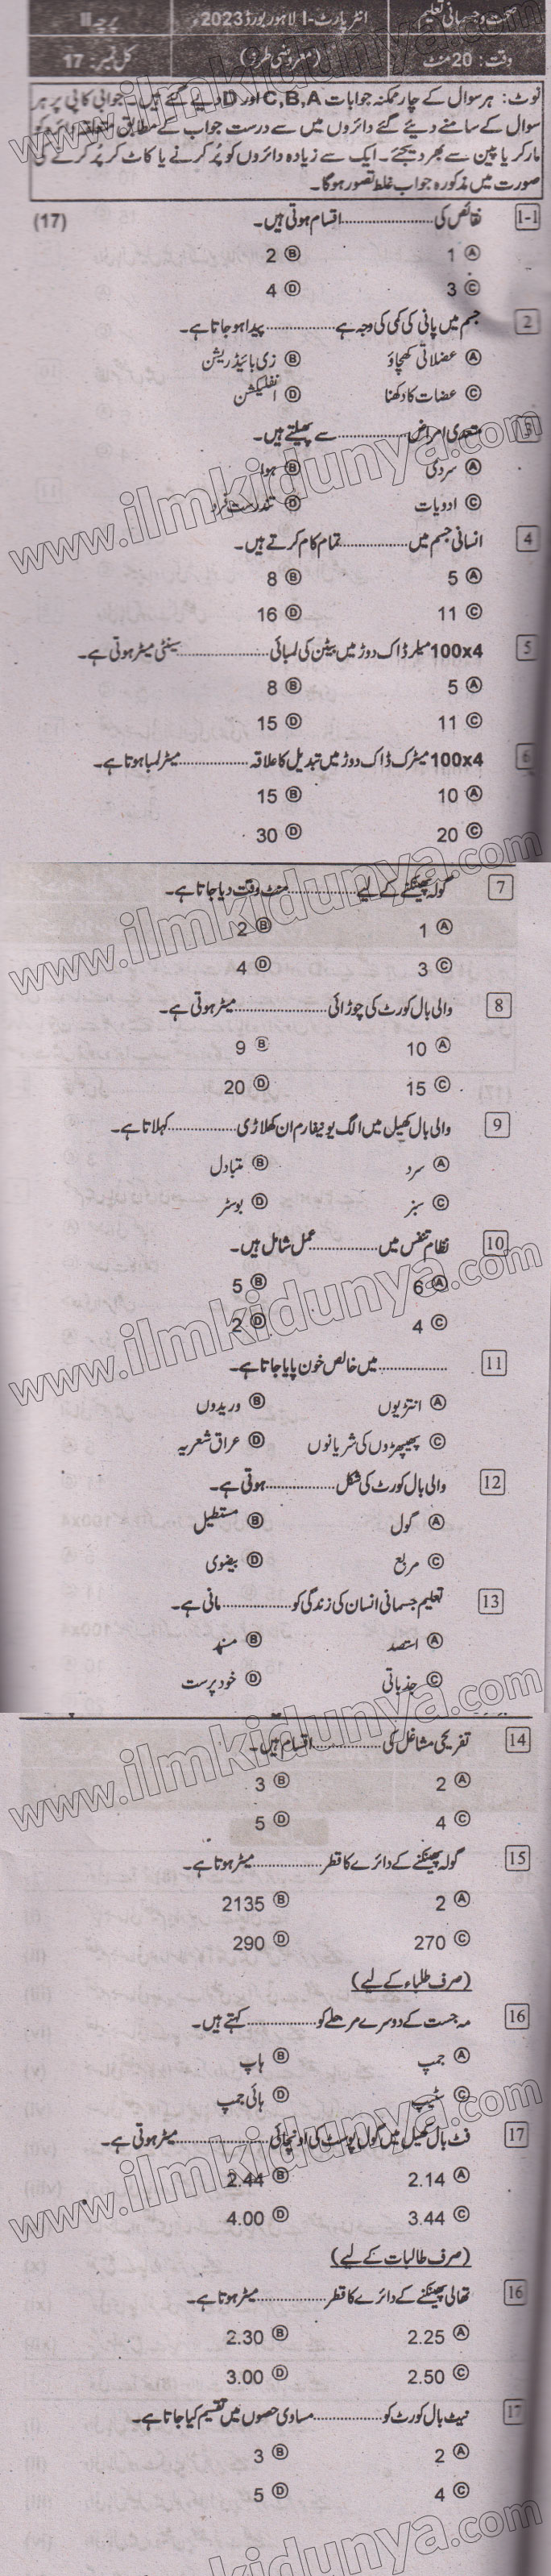 صحت و جسمانی تعلیم انٹر پارٹ-I لاہور بورڈ 2023ء پرچہ II
وقت: 20 منٹ (معروضی طرز) کل نمبر: 17
نوٹ: ہر سوال کے چار ممکنہ جوابات C,B,A اور D دیے گئے ہیں۔ جوابی کاپی پر ہر
سوال کے سامنے دیئے گئے دائروں میں سے درست جواب کے مطابق متعلقہ دائرہ کو
مارکر یا پین سے بھر دیجئے۔ ایک سے زیادہ دائروں کو پُر کرنے یا کاٹ کر پُر کرنے کی
صورت میں مذکورہ جواب غلط تصور ہوگا۔
1-1 نقائص کی ............ اقسام ہوتی ہیں۔ (17)
Ⓐ 1 Ⓑ 2
Ⓒ 3 Ⓓ 4
2 جسم میں پانی کی کمی کی وجہ ہے ............ پیدا ہو جاتا ہے۔
Ⓐ عضلاتی کھچاؤ Ⓑ زی ہائیڈریشن
Ⓒ عضات کا دکھنا Ⓓ انفلیکشن
3 متعدی امراض ............ سے پھیلتے ہیں۔
Ⓐ سردی Ⓑ ہوا
Ⓒ ادویات Ⓓ تندرست فرد
4 انسانی جسم میں ............ تمام کام کرتے ہیں۔
Ⓐ 5 Ⓑ 8
Ⓒ 11 Ⓓ 16
5 100x4 میلر ڈاک دوڑ میں بیٹن کی لمبائی ............ سینٹی میٹر ہوتی ہے۔
Ⓐ 5 Ⓑ 8
Ⓒ 11 Ⓓ 15
6 100x4 میٹرک ڈاک دوڑ میں تبدیل کا علاقہ ............ میٹر لمبا ہوتا ہے۔
Ⓐ 10 Ⓑ 15
Ⓒ 20 Ⓓ 30
7 گولہ پھینکنے کے لیے ............ منٹ وقت دیا جاتا ہے۔
Ⓐ 1 Ⓑ 2
Ⓒ 3 Ⓓ 4
8 والی بال کورٹ کی چوڑائی ............ میٹر ہوتی ہے۔
Ⓐ 10 Ⓑ 9
Ⓒ 15 Ⓓ 20
9 والی بال کھیل میں الگ یونیفارم ان کھلاڑی ............ کہلاتا ہے۔
Ⓐ سرد Ⓑ متبادل
Ⓒ سبز Ⓓ بوسٹر
10 نظام تنفس میں ............ عمل شامل ہیں۔
Ⓐ 6 Ⓑ 5
Ⓒ 4 Ⓓ 2
11 ............ میں خالص خون پایا جاتا ہے۔
Ⓐ انتڑیوں Ⓑ وریدوں
Ⓒ پھیپھڑوں کی شریانوں Ⓓ عراق شعریہ
12 والی بال کورٹ کی شکل ............ ہوتی ہے۔
Ⓐ گول Ⓑ مستطیل
Ⓒ مربع Ⓓ بیضوی
13 تعلیم جسمانی انسان کی زندگی کو ............ مانی ہے۔
Ⓐ استصد Ⓑ مند
Ⓒ جذباتی Ⓓ خود پرست
14 تفریحی مشاغل کی ............ اقسام ہیں۔
Ⓐ 2 Ⓑ 3
Ⓒ 4 Ⓓ 5
15 گولہ پھینکنے کے دائرے کا قطر ............ میٹر ہوتا ہے۔
Ⓐ 2 Ⓑ 2135
Ⓒ 270 Ⓓ 290
(صرف طلباء کے لیے)
16 مہ جست کے دوسرے مرحلے کو ............ کہتے ہیں۔
Ⓐ جمپ Ⓑ ہاپ
Ⓒ سٹیپ Ⓓ ہائی جمپ
17 فٹ بال کھیل میں گول پوسٹ کی اونچائی ............ میٹر ہوتی ہے۔
Ⓐ 2.14 Ⓑ 2.44
Ⓒ 3.44 Ⓓ 4.00
(صرف طالبات کے لیے)
16 تھالی پھینکنے کے دائرے کا قطر ............ میٹر ہوتا ہے۔
Ⓐ 2.25 Ⓑ 2.30
Ⓒ 2.50 Ⓓ 3.00
17 نیٹ بال کورٹ کو ............ مساوی حصوں میں تقسیم کیا جاتا ہے۔
Ⓐ 2 Ⓑ 3
Ⓒ 4 Ⓓ 5
www.ilmkidunya.com